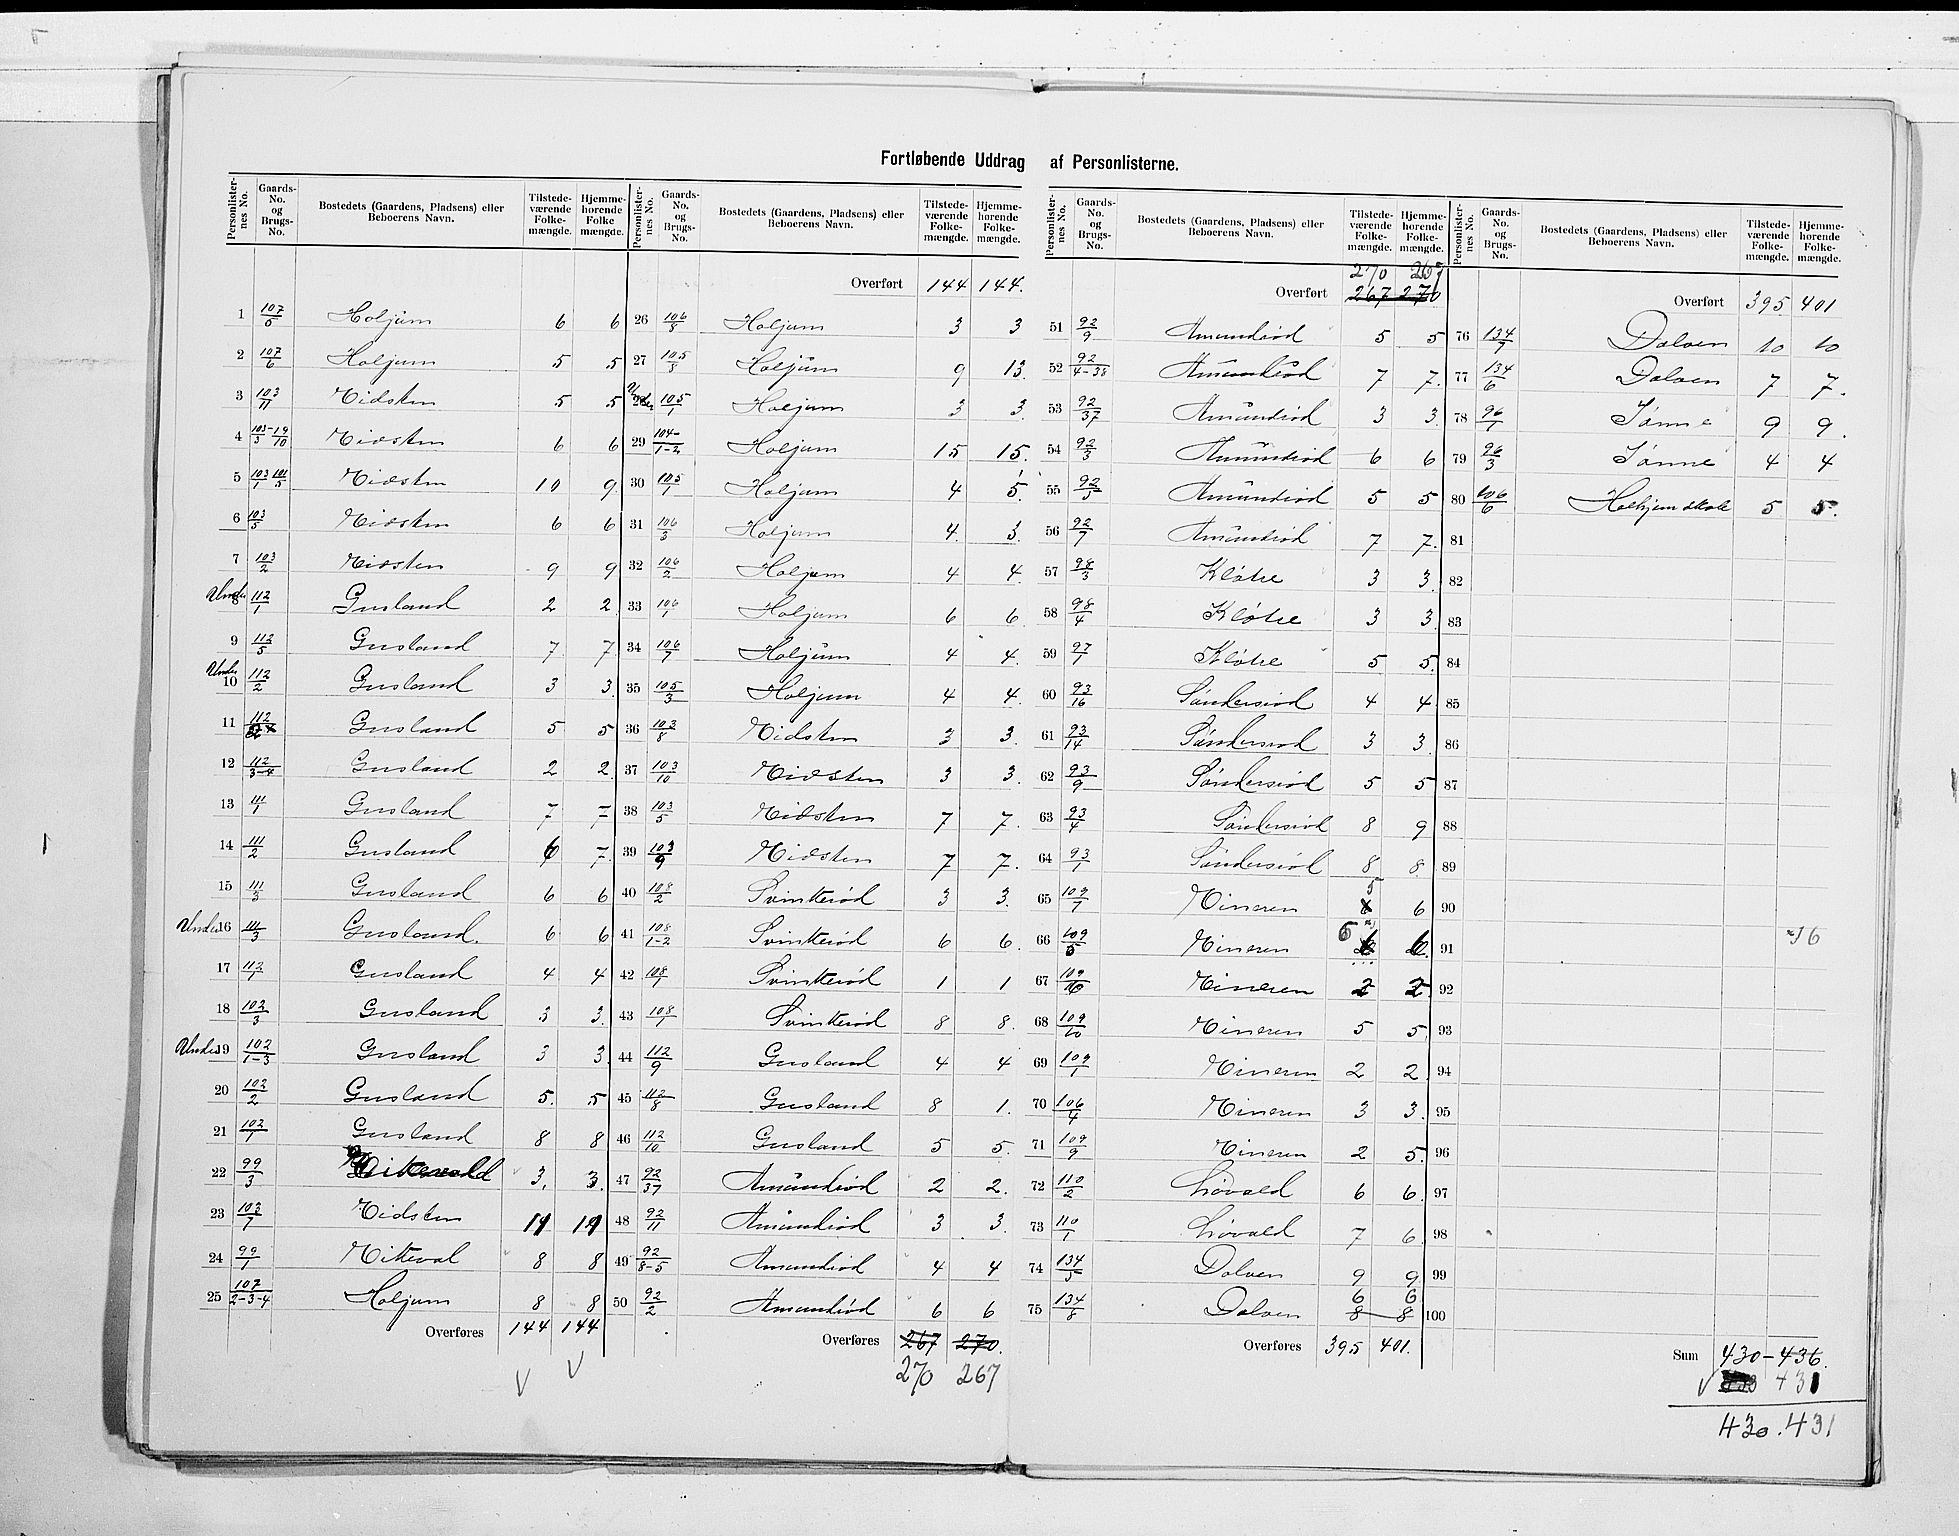 Fortløbende Uddrag af Personlisterne.
Personlister-nes No. Gaards-No. og Brugs-No. Bostedets (Gaardens, Pladsens) eller Beboerens Navn. Tilstede-værende Folke-mængde. Hjemme-hørende Folke mængde.
1 107/5 Holjum 6 6
2 107/6 Holjum 5 5
3 103/11 Midsten 5 5
4 103-19/3 10 Midsten 6 6
5 103/1 101/5 Midsten 10 9
6 103/5 Midsten 6 6
7 103/2 Midsten 9 9
Under 8 112/1 Gusland 2 2
9 112/5 Gusland 7 7
Under 10 112/2 Gusland 3 3
11 112 Gusland 5 5
12 112/3-4 Gusland 2 2
13 111/1 Gusland 7 7
14 111/2 Gusland 6 7
15 111/3 Gusland 6 6
Under 16 111/3 Gusland. 6 6
17 112/1 Gusland 4 4
18 102/3 Gusland 3 3
Under 19 102/1-3 Gusland 3 3
20 102/2 Gusland 5 5
21 102/1 Gusland 8 8
22 99/3 3 3
23 103/7 Midsten 11 11
24 99/1 Mikeval 8 8
25 107/2-3-4 Holjum 8 8
Overføres 144 144
Personlister-nes No. Gaards-No. og Brugs-No. Bostedets (Gaardens, Pladsens) eller Beboerens Navn. Tilstede-værende Folke-mængde. Hjemme-hørende Folke-mængde.
Overført 144 144.
26 106/8 Holjum 3 3
27 105/8 Holjum 9 13
Under 28 105/1 Holjum 3 3
29 104/1-2 Holjum 15 15
30 105/1 Holjum 4 5
31 106/3 Holjum 4 3
32 106/2 Holjum 4 4
33 106/1 Holjum 6 6
34 106/7 Holjum 4 4
35 105/3 Holjum 4 4
36 103/8 Midsten 3 3
37 103/10 Midsten 3 3
38 103/5 Midsten 7 7
39 103/9 Midsten 7 7
40 108/2 Svinkerød 3 3
41 108/1-2 Svinkerød 6 6
42 108/1 Svinkerød 1 1
43 108/1 Svinkerød 8 8
44 112/9 Gusland 4 4
45 112/8 Gusland 8 1
46 112/10 Gusland 5 5
47 92/37 Amundrød 2 2
48 92/11 Amundrød 3 3
49 92/8-5 Amundrød 4 4
50 92/2 Amundrød 6 6
Overføres 267 270.
270 267
Personlister-nes No. Gaards-No. og Brugs-No. Bostedets (Gaardens, Pladsens) eller Beboerens Navn. Tilstede-værende Folke-mængde. Hjemme-hørende Folke-mængde.
270 267
Overført 267 270
51 92/9 Amundrød 5 5
52 92/4-38 Amundrød 7 7
53 92/37 Amundrød 3 3
54 92/3 Amundrød 6 6
55 92/5 Amundrød 5 5
56 92/7 Amundrød 7 7
57 98/3 Kløtre 3 3
58 98/4 Kløtre 3 3
59 97/1 Kløtre 5 5
60 93/16 Søndersrød 4 4
61 93/14 Søndersrød 3 3
62 93/9 Søndersrød 5 5
63 93/4 Søndersrød 8 9
64 93/1 Søndersrød 8 8
65 109/7 Mineren 5 6
66 109/5 Mineren 6 6
67 109/16 Mineren 2 2
68 109/10 Mineren 5 5
69 109/1 Mineren 2 2
70 106/4 Mineren 3 3
71 109/9 Mineren 2 5
72 110/2 Løvald 6 6
73 110/1 Løvald 7 6
74 134/5 Dolven 9 9
6 6
75 134/8 Dolven 8 8
Overføres 395 401.
Personlister-nes No. Gaards-No. og Brugs-No. Bostedets (Gaardens, Pladsens) eller Beboerens Navn. Tilstede-værende Folke-mængde. Hjemme-hørende Folke-mængde.
Overført 395 401
76 134/7 Dolven 10 10
77 134/6 Dolven 7 7
78 96/1 Tønne 9 9
79 96/3 Tønne 4 4
80 106/6 Holhjem skole 5 5
81
82
83
84
85
86
87
88
89
90
91
92
93
94
95
96
97
98
99
100
Sum 430-436.
431
430. 431